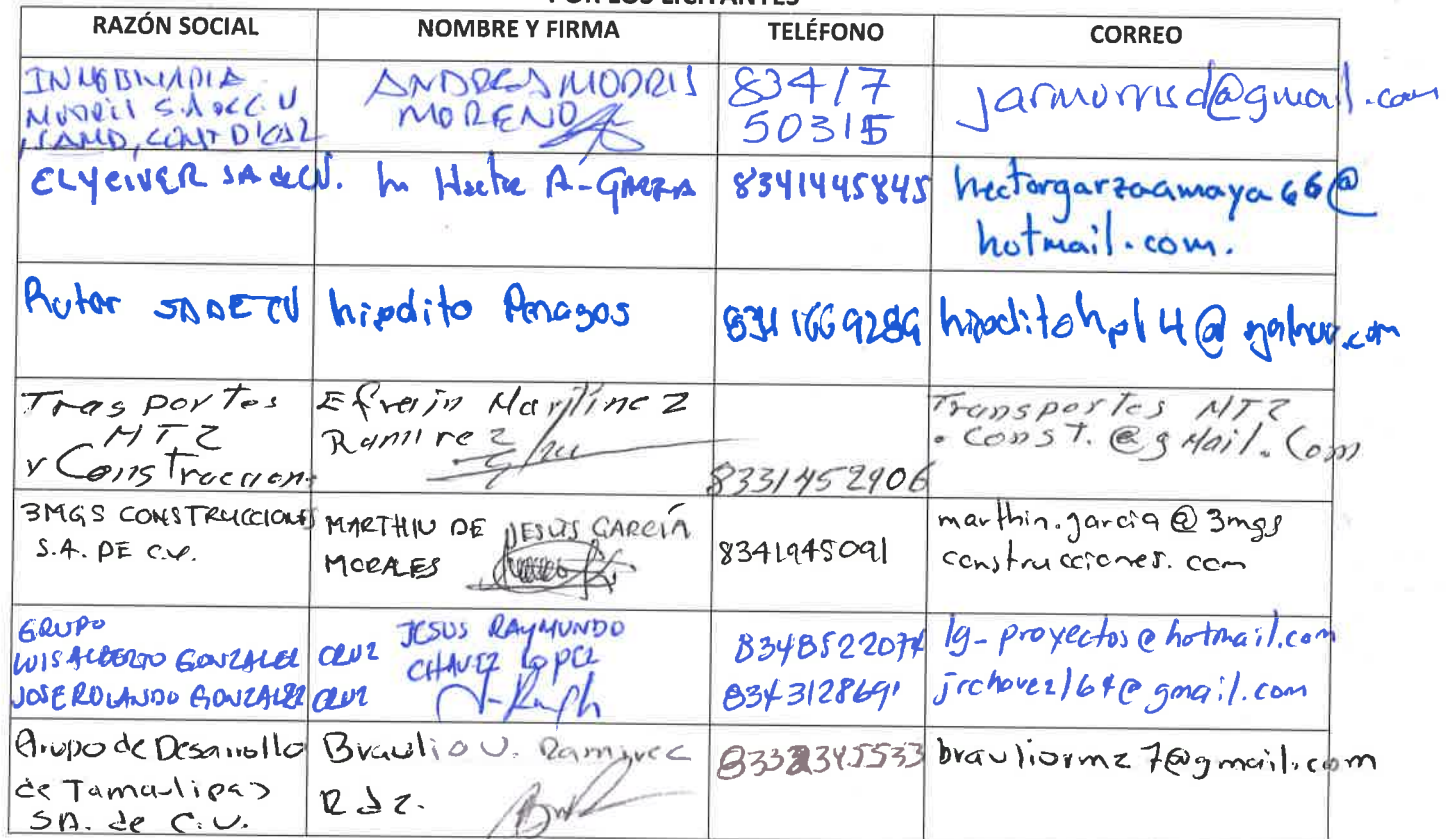 POR LOS LICITANTES
RAZÓN SOCIAL NOMBRE Y FIRMA TELÉFONO CORREO
INMOBILIARIA
S.A DE C.V
ANDRES MORRIS
MORENO
83417
50315
jarmorrisd@gmail.com
ELYCIVER SA de CV. In Hector A-GARZA 8341445845 hectorgarzaamaya66@
hotmail.com.
Rutar SA DE CV hipolito Penagos 8341669286 hipolitohp14@yahoo.com
Trasportes
MTZ
y Construccion.
Efrain Martinez
Ramirez
8331452906
Transportes MTZ
.Const.@gMail.Com
3MGS CONSTRUCCIONES
S.A. DE C.V.
MARTHIN DE JESUS GARCÍA
MORALES
8341945091
marthin.garcia@3mgs
construcciones.com
GRUPO
LUIS ALBERTO GONZALEZ CRUZ
JOSE ROLANDO GONZALEZ CRUZ
JESUS RAYMUNDO
CHAVEZ LOPEZ
8348522074
8343128691
lg-proyectos@hotmail.com
jrchavez164@gmail.com
Grupo de Desarrollo
de Tamaulipas
SA. de C.V.
Braulio U. Ramirez
Rdz.
8332345533
brauliormz7@gmail.com